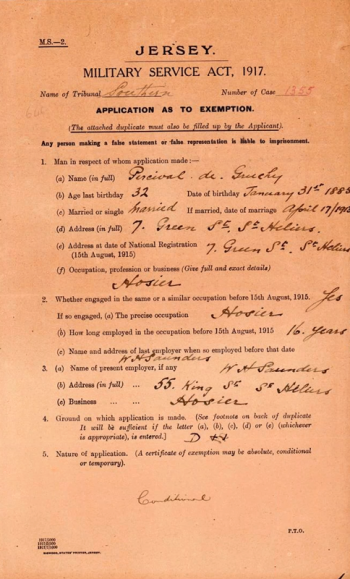 M.S.—2.
JERSEY.
MILITARY SERVICE ACT, 1917.
Name of Tribunal Southern Number of Case 1355
APPLICATION AS TO EXEMPTION.
(The attached duplicate must also be filled up by the Applicant).
Any person making a false statement or false representation is liable to imprisonment.
1. Man in respect of whom application made:—
(a) Name (in full) Percival de Gruchy
(b) Age last birthday 32 Date of birthday January 31st 1885
(c) Married or single Married If married, date of marriage April 17/191
(d) Address (in full) 7. Green St. St Heliers.
(e) Address at date of National Registration 7. Green St. St Heliers
(15th August, 1915)
(f) Occupation, profession or business (Give full and exact details)
Hosier
2. Whether engaged in the same or a similar occupation before 15th August, 1915. Yes
If so engaged, (a) The precise occupation Hosier
(b) How long employed in the occupation before 15th August, 1915 16. years
(c) Name and address of last employer when so employed before that date
W H Saunders
3. (a) Name of present employer, if any W H Saunders
(b) Address (in full) ... 55. King St St Heliers
(c) Business ... ... Hosier
4. Ground on which application is made. (See footnote on back of duplicate
It will be sufficient if the letter (a), (b), (c), (d) or (e) (whichever
is appropriate), is entered.] D
5. Nature of application. (A certificate of exemption may be absolute, conditional
or temporary).
Conditional
P.T.O.